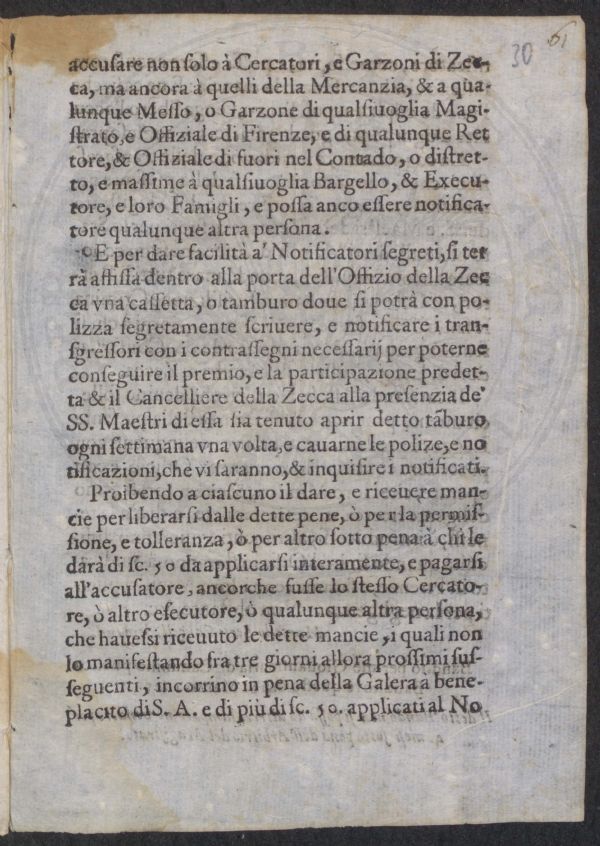 30 61
accusare non solo à Cercatori, e Garzoni di Zec-
ca, ma ancora à quelli della Mercanzia, & a qua-
lunque Messo, o Garzone di qualsiuoglia Magi-
strato, e Offiziale di Firenze, e di qualunque Ret
tore, & Offiziale di fuori nel Contado, o distret-
to, e massime à qualsiuoglia Bargello, & Execu-
tore, e loro Famigli, e possa anco essere notifica-
tore qualunque altra persona.
E per dare facilità a' Notificatori segreti, si ter
rà affissa dentro alla porta dell'Offizio della Zec
ca vna cassetta, o tamburo doue si potrà con po-
lizza segretamente scriuere, e notificare i tran-
sgressori con i contrassegni necessarij per poterne
conseguire il premio, e la participazione predet-
ta & il Cancelliere della Zecca alla presenzia de'
SS. Maestri di essa sia tenuto aprir detto tãburo
ogni settimana vna volta, e cauarne le polize, e no
tificazioni, che vi saranno, & inquisire i notificati.
Proibendo a ciascuno il dare, e riceuere man-
cie per liberarsi dalle dette pene, ò per la permis-
sione, e tolleranza, ò per altro sotto pena à chi le
darà di sc. 50 da applicarsi interamente, e pagarsi
all'accusatore, ancorche fusse lo stesso Cercato-
re, ò altro esecutore, ò qualunque altra persona,
che hauessi riceuuto le dette mancie, i quali non
lo manifestando fra tre giorni allora prossimi sus-
seguenti, incorrino in pena della Galera à bene-
placito di S. A. e di più di sc. 50. applicati al No